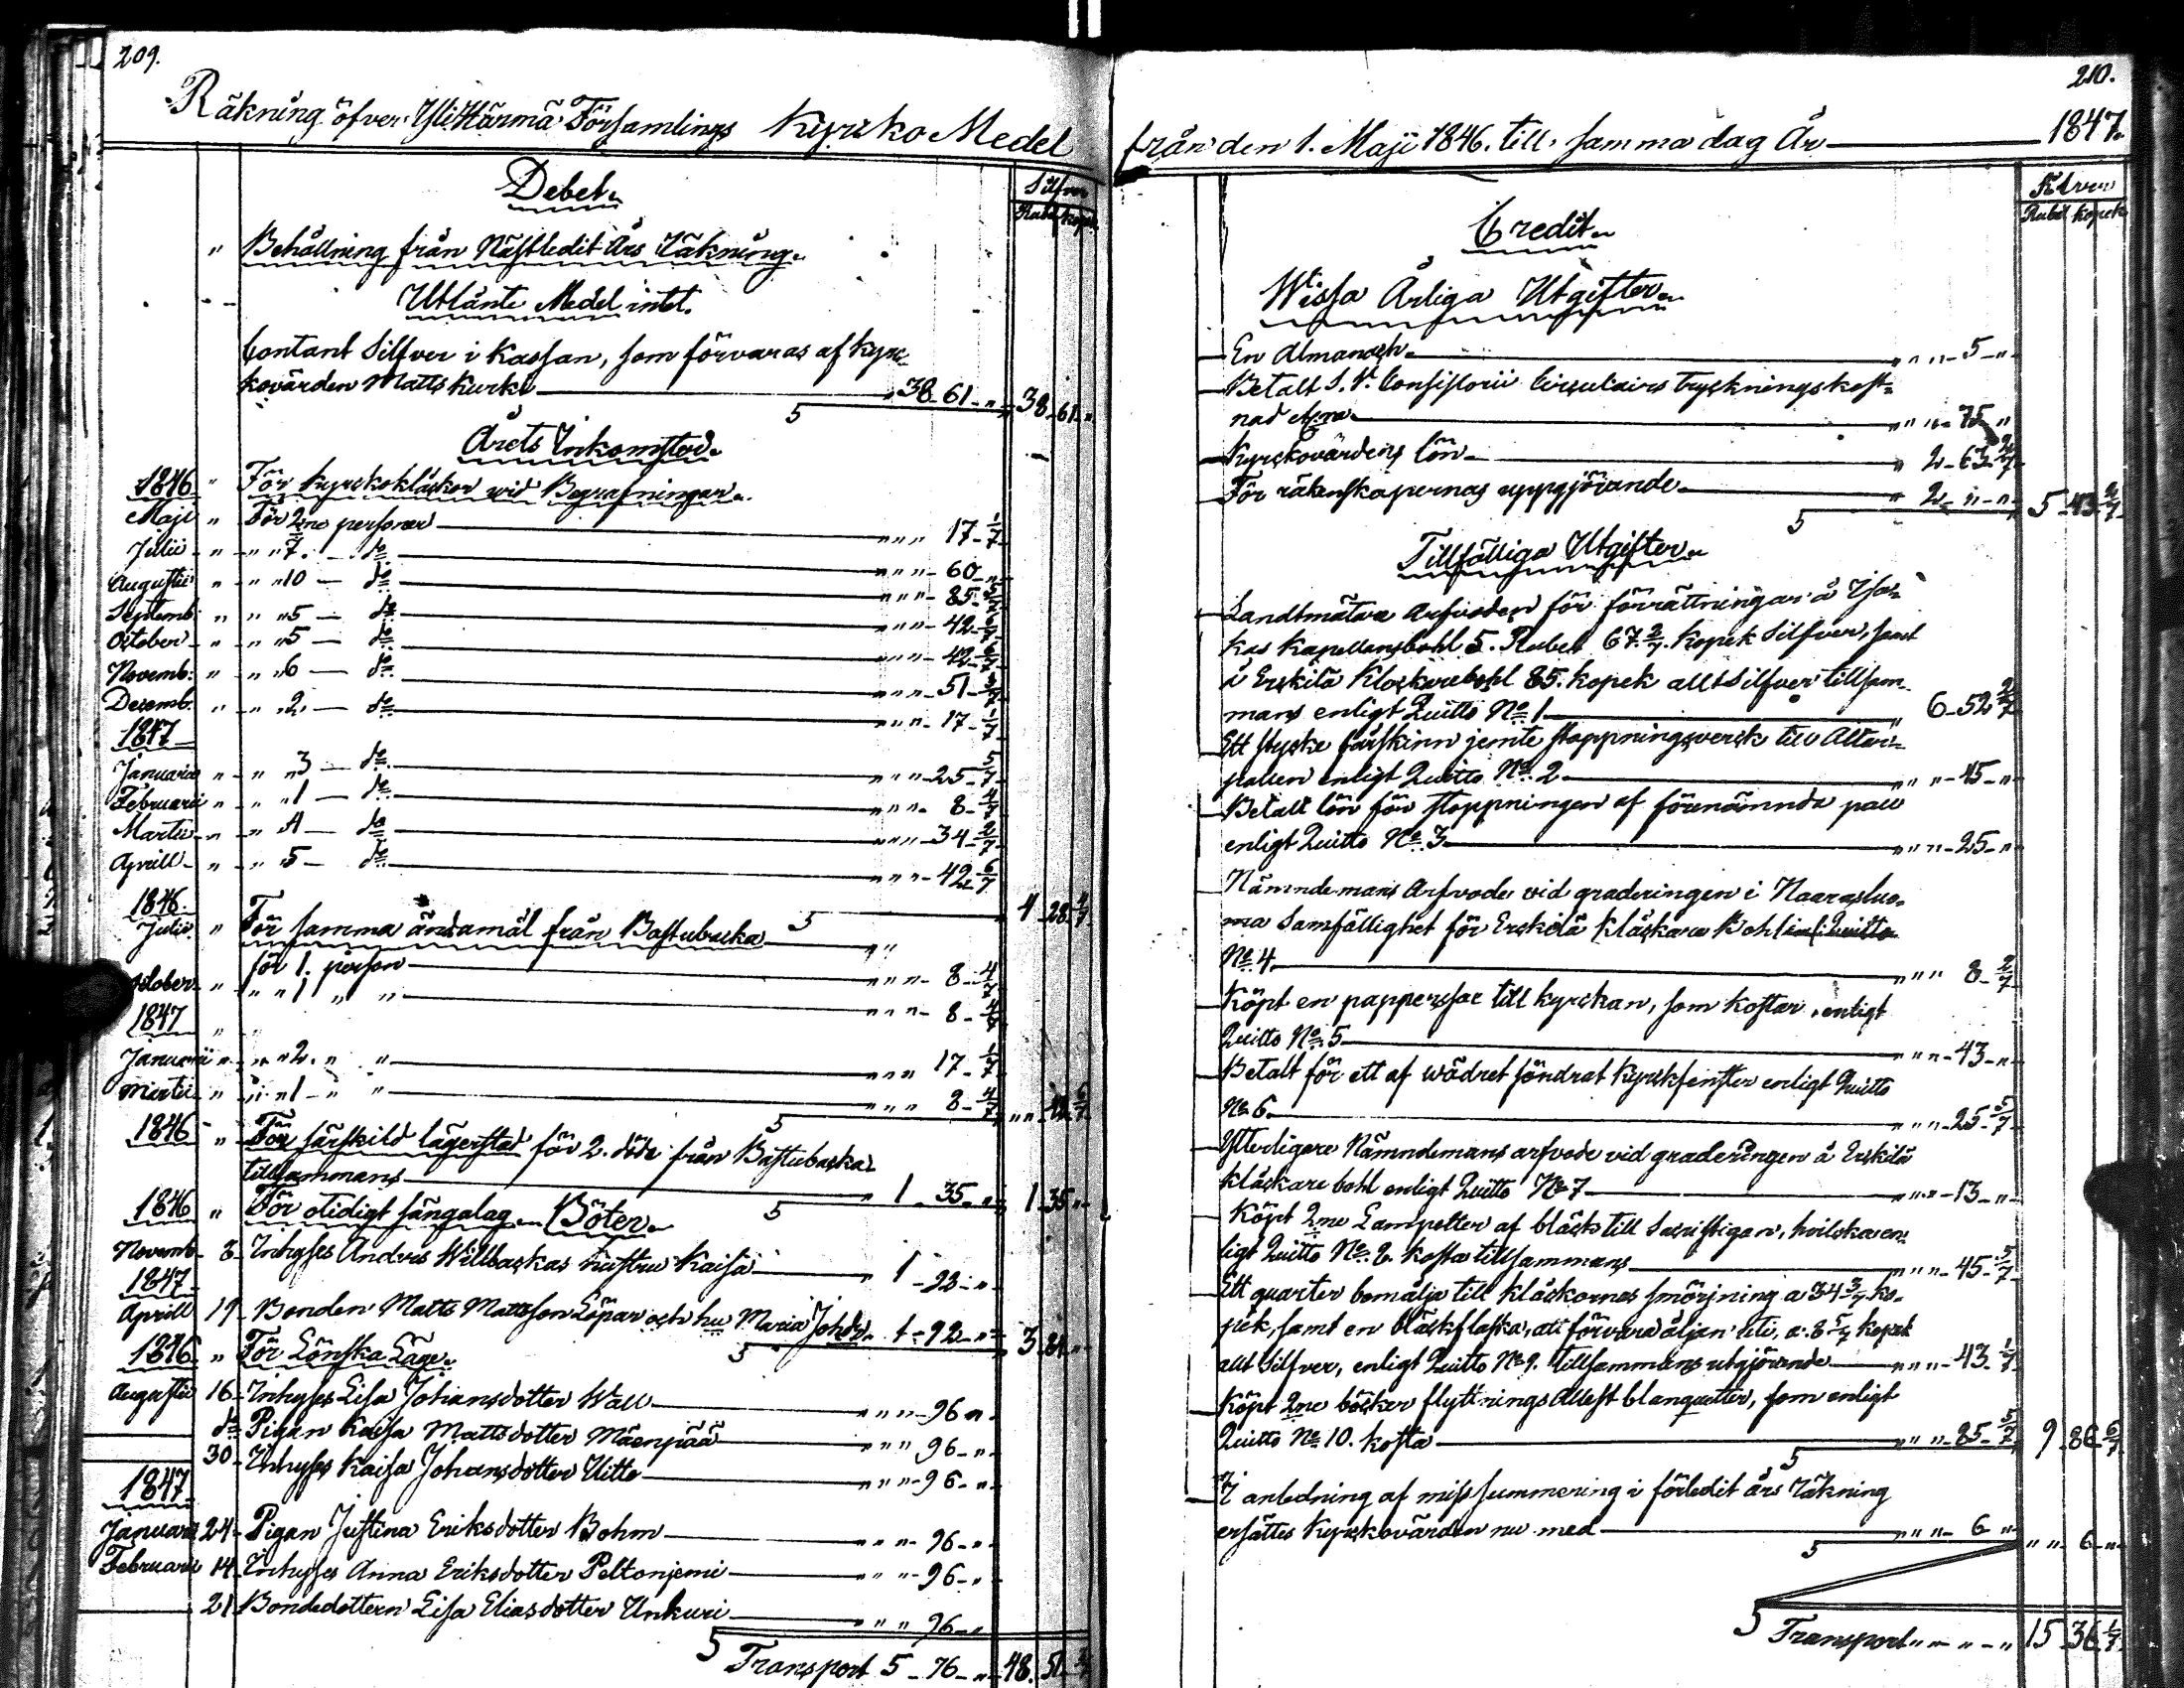 209.
Räkning öfver Yli Härmä Församlings Kyrko Medel
Debet.
Silfver
Rub. kop.
" Behållning från Nästledit Års Räkning.
Utlånte Medel intet.
Contant Silfver i Kassan, som förvaras af Kyrc-
kovärden Matts Kurki " 38 - 61 - " 38 - 61 - "
5
Årets Inkomster.
1846 " För kyrckoklåckor wid Begrafningar.
Maji " För 2ne personer " " " 17 1/7
Julii " " " 7. do " " " 60 - "
Augustii " " " 10 — do " " " 85 5/7
Septemb. " " " 5 — do " " " 42 6/7
October " " " 5 — do " " " 42 6/7
Novemb. " " " 6 — do " " " 51 3/7
Decemb. " " " 2 — do " " " 17 1/7
1847
Januarii " " " 3 — do " " " 25 5/7
Februarii " " " 1 — do " " " 8 4/7
Martii " " " 4 — do " " " 34 2/7
Aprill " " " 5 — do " " " 42 6/7
5 4 28 4/7
1846.
Julii " För samma ändamål från Bastubacka
för 1. person " " " 8 4/7
October " " " 1 " " " " " 8 4/7
1847 " "
Januarii " " " 2. " " " " " 17 1/7
Martii " " " 1 - " " " " " 8 4/7
5 " " 42 6/7
1846 " För särskild lägerstad för 2. döda från Bastubacka
tillsammans " 1 - 35 - " 1 35 "
5
1846 " För otidigt sängalag - Böter.
Novemb. 8 Inhyses Anders Willbackas hustru Kaisa " 1 - 92 - "
1847
Aprill 19 Bonden Matts Mattsson Löpar och hu Maria Johdr. 1 - 92 - " 3 84 "
5
1846 " För Lönska Läge.
Augustii 16 Inhyses Lisa Johansdotter Wall " " " 96 "
do Pigan Kaisa Mattsdotter Mäenpää " " " 96 - "
30 Inhyses Kaisa Johansdotter Uitto " " " 96 - "
1847
Januarii 24 Pigan Justina Eriksdotter Bohm " " " 96 - "
Februarii 14 Inhyses Anna Eriksdotter Peltoniemi " " " 96 - "
21 Bondedottern Lisa Eliasdotter Unkuri " " " 96 - "
5 Transport 5 - 76 - " 48. 51
210.
från den 1. Maji 1846. till samma dag År 1847.
Silfver
Rubel kopek
Credit.
Wissa Årliga Utgifter.
En Almanach " " " 5 "
Betalt S. V. Consistorii Circulairs tryckningskost-
nad " " " 75 "
Kyrckovärdens lön " 2 - 63 2/7
För räkenskapernas uppgjörande " 2 - " - " 5 43 2/7
5
Tillfälliga Utgifter.
Landtmätare Arfvoden för förrättningar å Isa-
kas Kapellansbohl 5. Rubel 67 2/7 kopek Silfver, samt
å Erckilä Klockarebohl 85. kopek allt Silfver tillsam-
mans enligt Quitto No 1 " 6 - 52 2/7
Ett stycke fårskinn jemte stoppningsverk till Altar-
pallen enligt Quitto No 2 " " - 45 - "
Betalt lön för stoppningen af förenämnda pall
enligt Quitto No 3 " " " - 25 - "
Nämndemans Arfvode vid graderingen i Naarasluo-
ma Samfällighet för Erckilä klåckare Bohl enl: Quitto
No 4 " " 8 2/7
Köpt en papperssax till kyrckan, som kostar, enligt
Quitto No 5 " " " - 43 - "
Betalt för ett af wädret söndrat Kyrckfenster enligt Quitto
No 6 " " " - 25 5/7
Ytterligare Nämndemans arfvode vid graderingen å Erckilä
klåckare bohl enligt Quitto No 7 " " " - 13 - "
Köpt 2ne Lampetter af bläck till Sacristigan, hvilcka en-
ligt Quitto No 8. kosta tillsammans " " " - 45 5/7
Ett quarter bomålja till klåckornas smörjning a 34 3/7 ko-
pek, samt en bläckflaska, att förvara åljan uti, a. 8 5/7 kopek
allt Silfver, enligt Quitto No 9. tillsammans utgjörande " " " - 43 1/7
Köpt 2ne böcker flyttnings Attest blanquetter, som enligt
Quitto No 10. kosta " " " - 85 5/7 9 86 6/7
5
I anledning af missummering i förledit års Räkning
ersättes Kyrckovärden nu med " " " - 6 " " " 6 "
5
5 Transport " - " - " 15 36 1/7